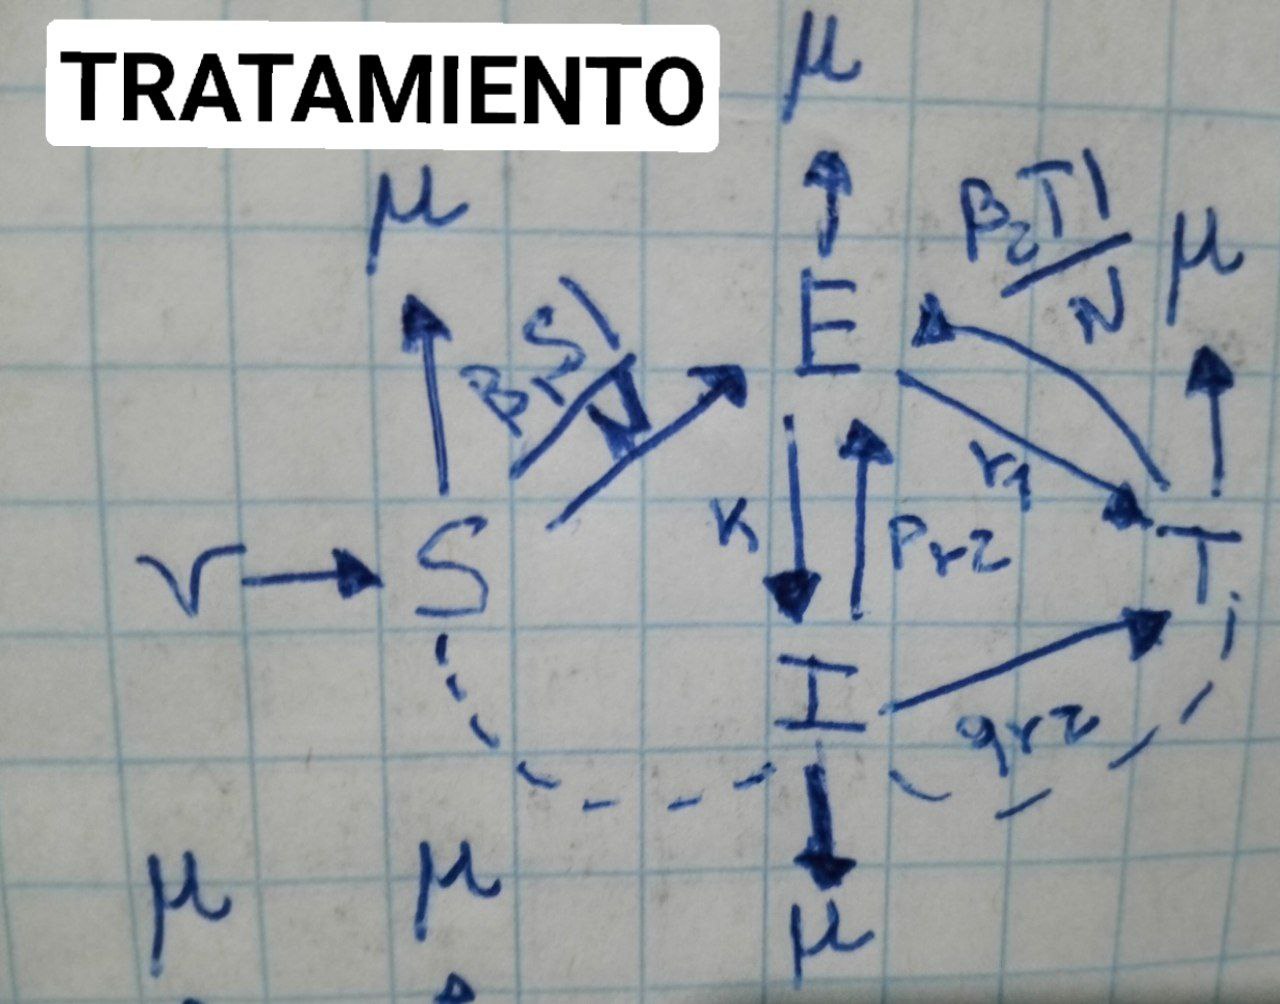 TRATAMIENTO
μ
μ
β₂TI/N
μ
β₁SI/N
E
r₁
K
pr₂
ν
S
T
I
qr₂
μ
μ
μ